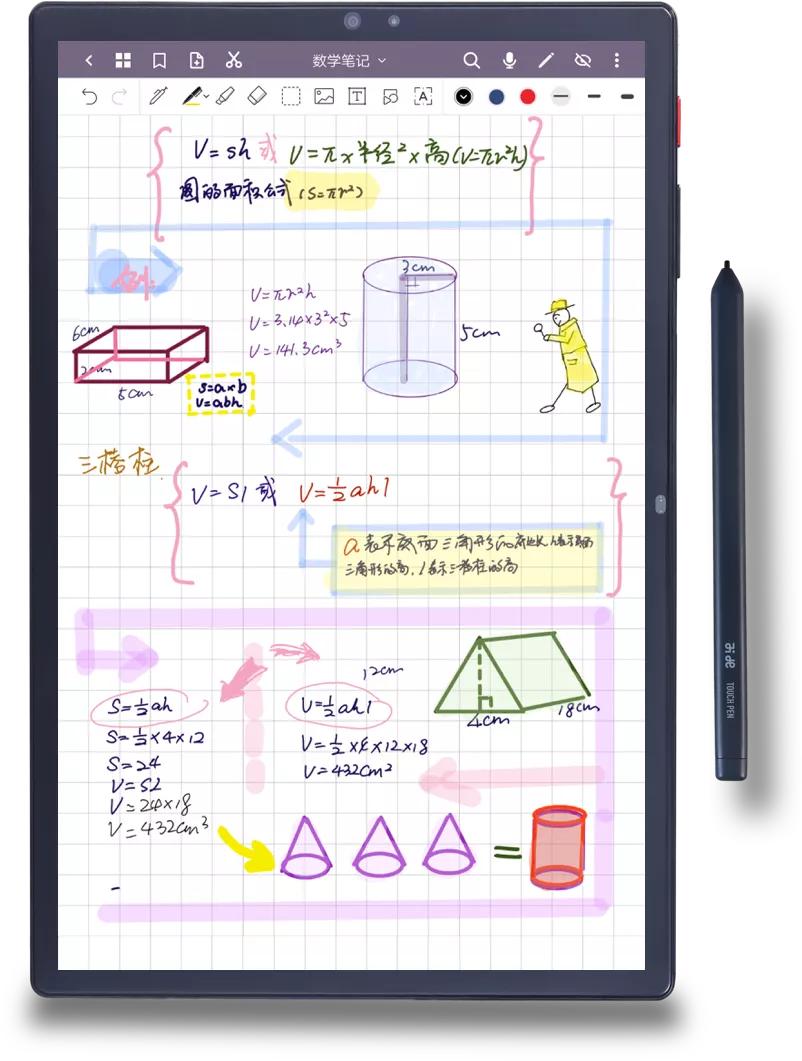 数学笔记
V=sh或 V=π×半径²×高(V=πr²h)
圆的面积公式(S=πr²)
例:
3cm
V=πr²h
V=3.14×3²×5
V=141.3cm³
5cm
6cm
2cm
5cm
S=a×b
V=abh
三棱柱
V=Sl或 V=½ahl
a表示底面三角形的底边长,h表示底面
三角形的高,l表示三棱柱的高
12cm
4cm
18cm
S=½ah
S=½×4×12
S=24
V=Sl
V=24×18
V=432cm³
V=½ahl
V=½×4×12×18
V=432cm²
=
TOUCH PEN